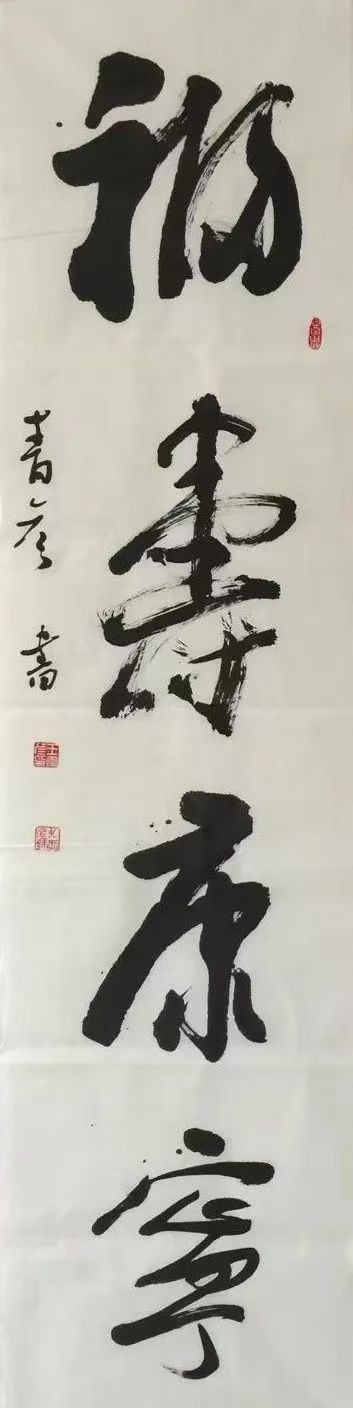 福壽康寧
青彦書